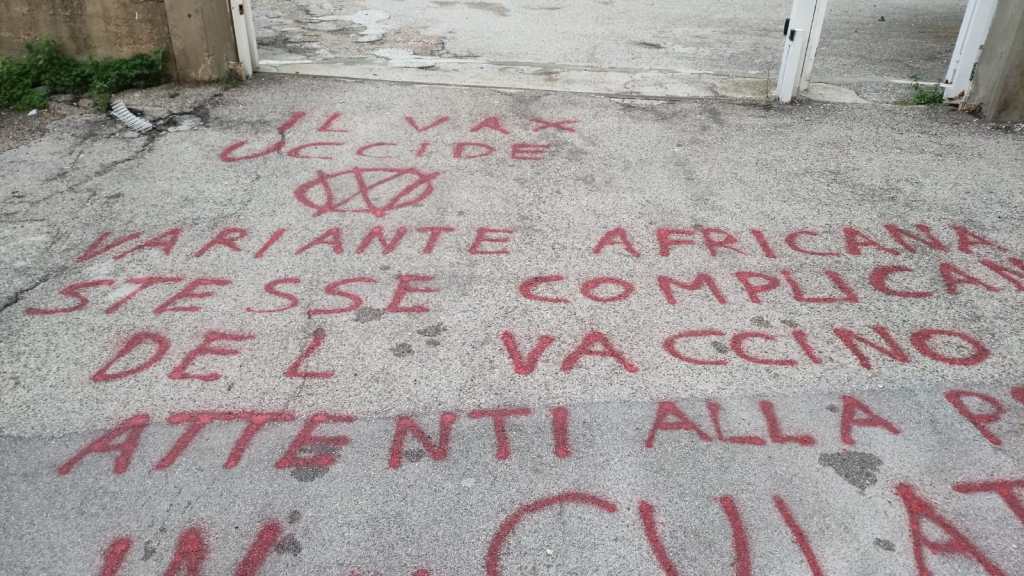 IL VAX
UCCIDE
VARIANTE AFRICANA
STESSE COMPLICAN
DEL VACCINO
ATTENTI ALLA